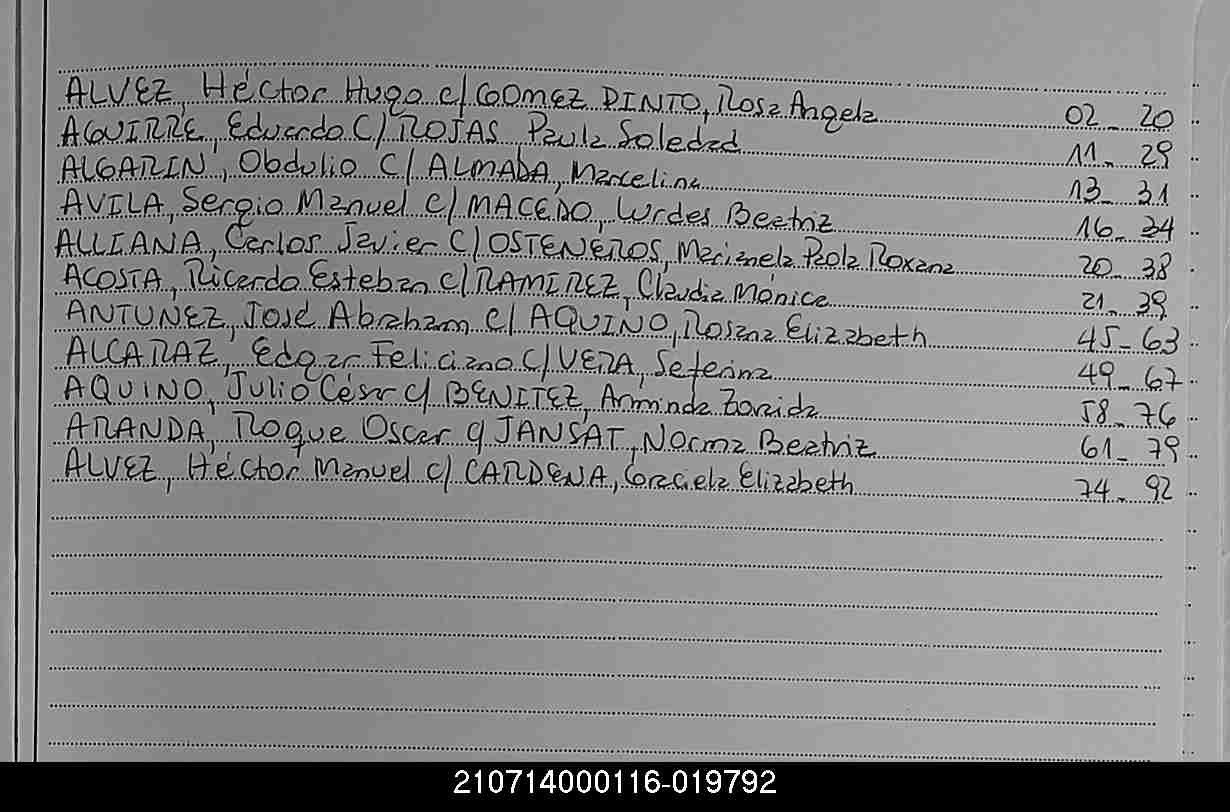 ALVEZ, Héctor Hugo c/ GOMEZ PINTO, Rosa Angela 02_ 20
AGUIRRE, Eduardo C/ ROJAS, Paula Soledad 11_ 29
ALGARIN, Obdulio C/ ALMADA, Marcelina 13_ 31
AVILA, Sergio Manuel C/ MACEDO, Lurdes Beatriz 16_ 34
ALLIANA, Carlos Javier C/ OSTENEROS, Marianela Paola Roxana 20_ 38
ACOSTA, Ricardo Esteban c/ RAMIREZ, Claudia Mónica 21_ 39
ANTUNEZ, José Abraham c/ AQUINO, Rosana Elizabeth 45_ 63
ALCARAZ, Edgar Feliciano C/ VERA, Seferina 49_ 67
AQUINO, Julio César c/ BENITEZ, Arminda Zoraida 58_ 76
ARANDA, Roque Oscar c/ JANSAT, Norma Beatriz 61_ 79
ALVEZ, Héctor Manuel c/ CARDENA, Graciela Elizabeth 74_ 92
210714000116-019792